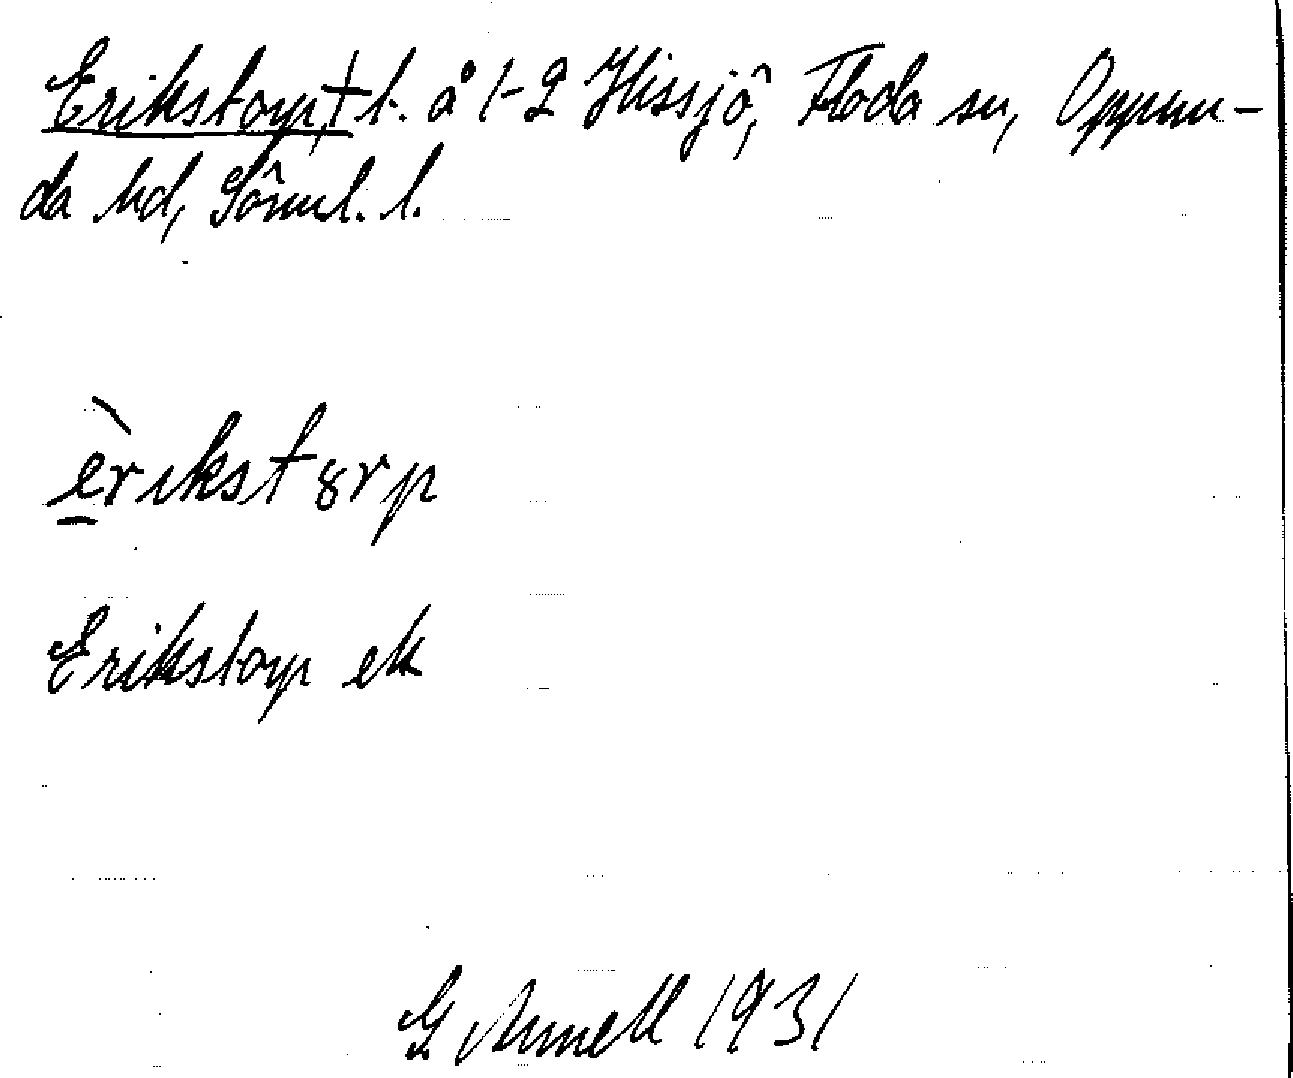 Erikstorp, † t. å 1-2 Hissjö, Floda sn, Oppun-
da hd, Sörml. l.
èrikst8rp
Erikstorp ek
G Annell 1931